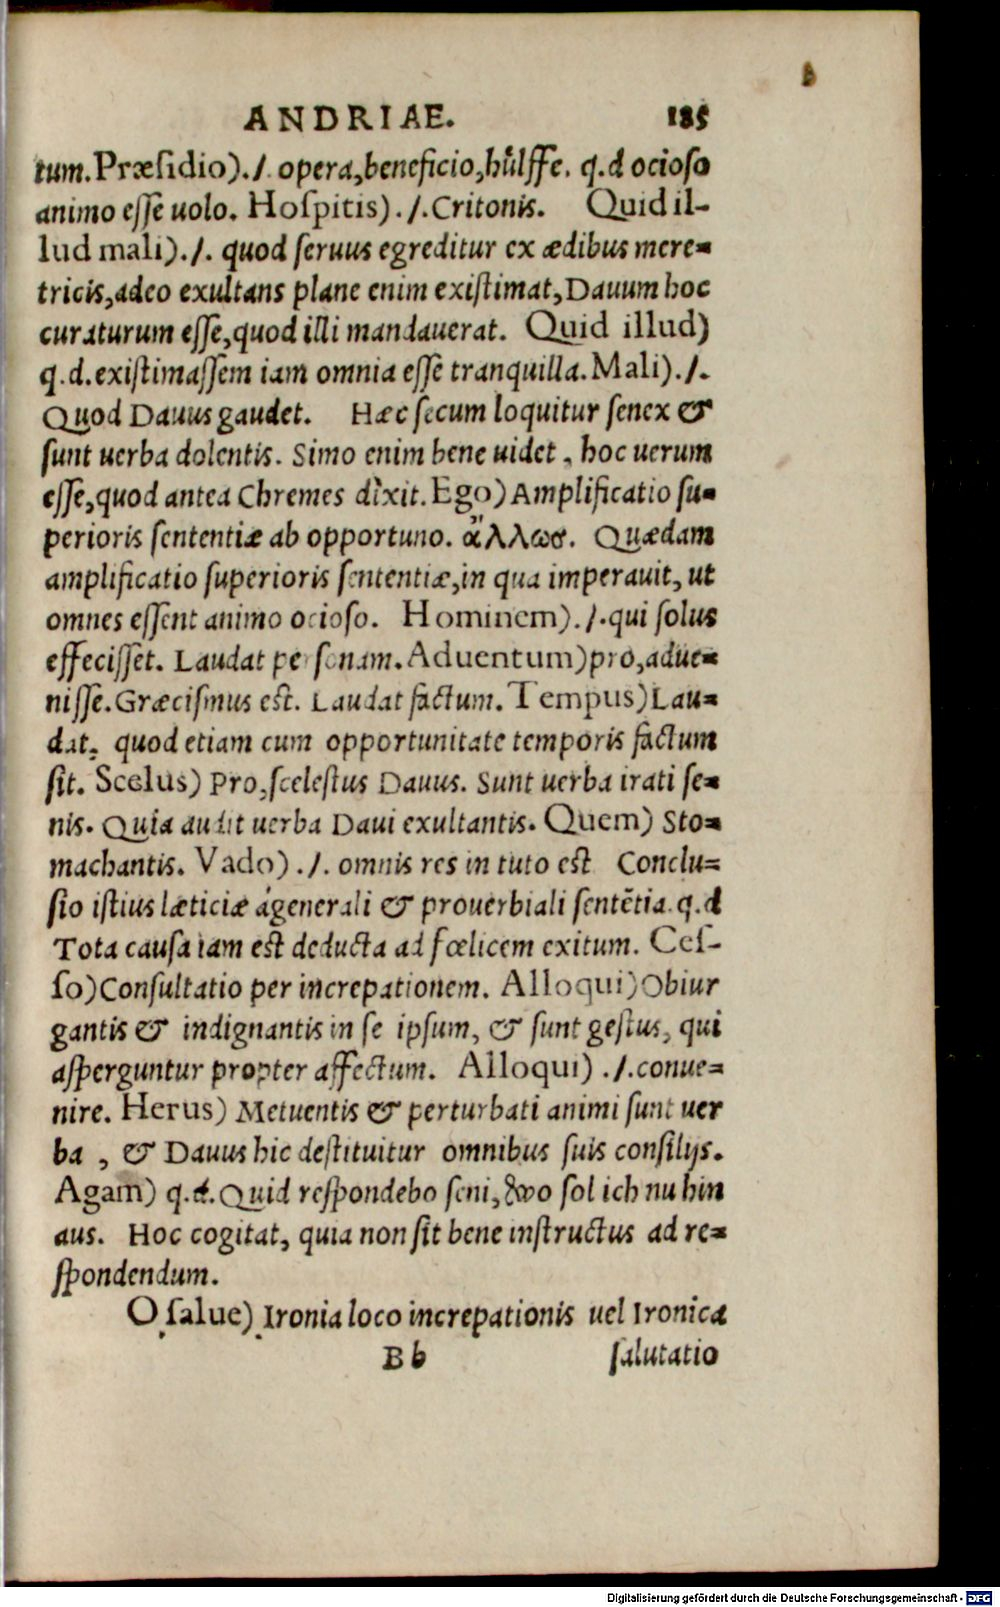 ANDRIAE. 185
tum. Præsidio)./. opera, beneficio, hülffe. q.d ocioso
animo esse uolo. Hospitis)./. Critonis. Quid il-
lud mali)./. quod seruus egreditur ex ædibus mere-
tricis, adeo exultans plane enim existimat, Dauum hoc
curaturum esse, quod illi mandauerat. Quid illud)
q.d. existimassem iam omnia esse tranquilla. Mali)./.
Quod Dauus gaudet. Hæc secum loquitur senex &
sunt uerba dolentis. Simo enim bene uidet, hoc uerum
esse, quod antea Chremes dixit. Ego) Amplificatio su-
perioris sententiæ ab opportuno. ἄλλως. Quædam
amplificatio superioris sententiæ, in qua imperauit, ut
omnes essent animo ocioso. Hominem)./. qui solus
effecisset. Laudat personam. Aduentum) pro, adue-
nisse. Græcismus est. Laudat factum. Tempus) Lau-
dat, quod etiam cum opportunitate temporis factum
sit. Scelus) Pro, scelestus Dauus. Sunt uerba irati se-
nis. Quia audit uerba Daui exultantis. Quem) Sto-
machantis. Vado)./. omnis res in tuto est Conclu-
sio istius læticiæ à generali & prouerbiali sentẽtia. q.d
Tota causa iam est deducta ad fœlicem exitum. Ces-
so) Consultatio per increpationem. Alloqui) Obiur
gantis & indignantis in se ipsum, & sunt gestus, qui
asperguntur propter affectum. Alloqui)./. conue-
nire. Herus) Metuentis & perturbati animi sunt uer
ba, & Dauus hic destituitur omnibus suis consilijs.
Agam) q.d. Quid respondebo seni, wo sol ich nu hin
aus. Hoc cogitat, quia non sit bene instructus ad re-
spondendum.
O salue) Ironia loco increpationis uel Ironica
Bb salutatio
Digitalisierung gefördert durch die Deutsche Forschungsgemeinschaft - DFG